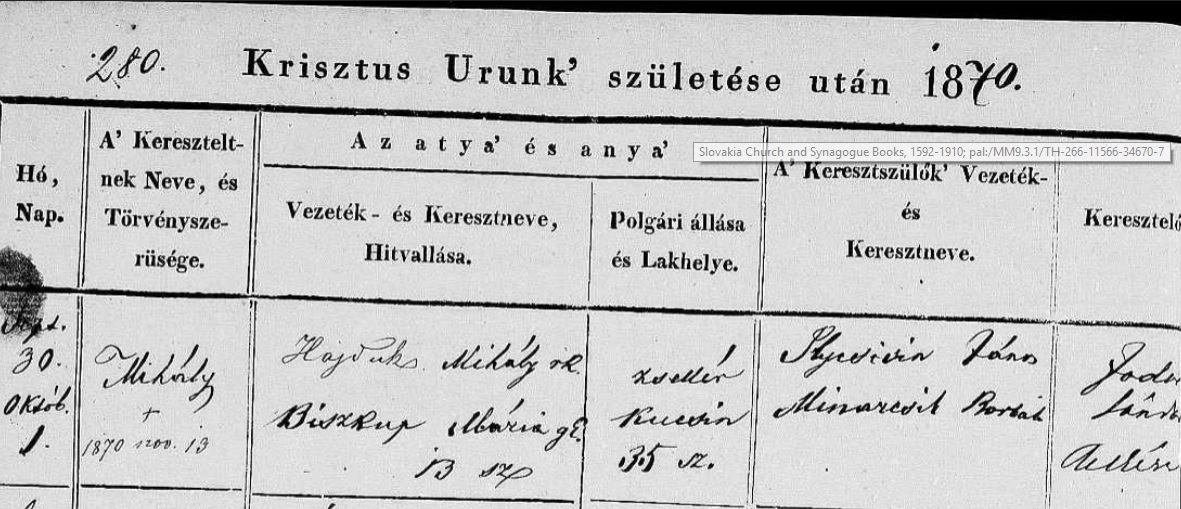 280. Krisztus Urunk' születése után 1870.
Hó,
Nap.
A' Keresztelt-
nek Neve, és
Törvénysze-
rüsége.
Az atya' és anya'
Vezeték- és Keresztneve,
Hitvallása.
Polgári állása
és Lakhelye.
Slovakia Church and Synagogue Books, 1592-1910; pal:/MM9.3.1/TH-266-11566-34670-7
A' Keresztszülők' Vezeték-
és
Keresztneve.
Keresztelő
Sept.
30.
Október.
1.
Mihály
+
1870 nov. 13
Hajduk Mihály rk.
Biszkup Mária gk.
sz
zsellér
Kucsin
35 sz.
János
Minarcsik Borbála